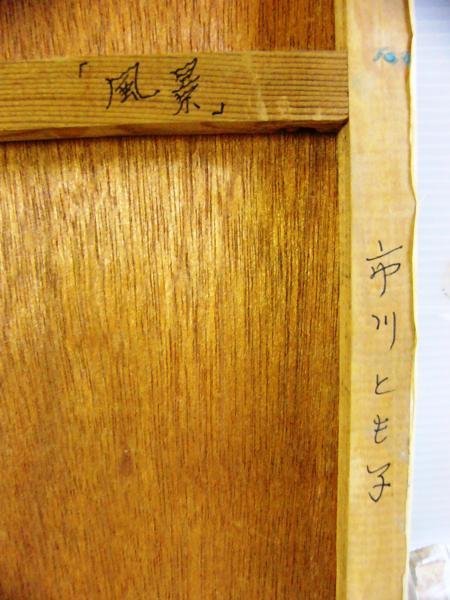 「風景」
市川とも子